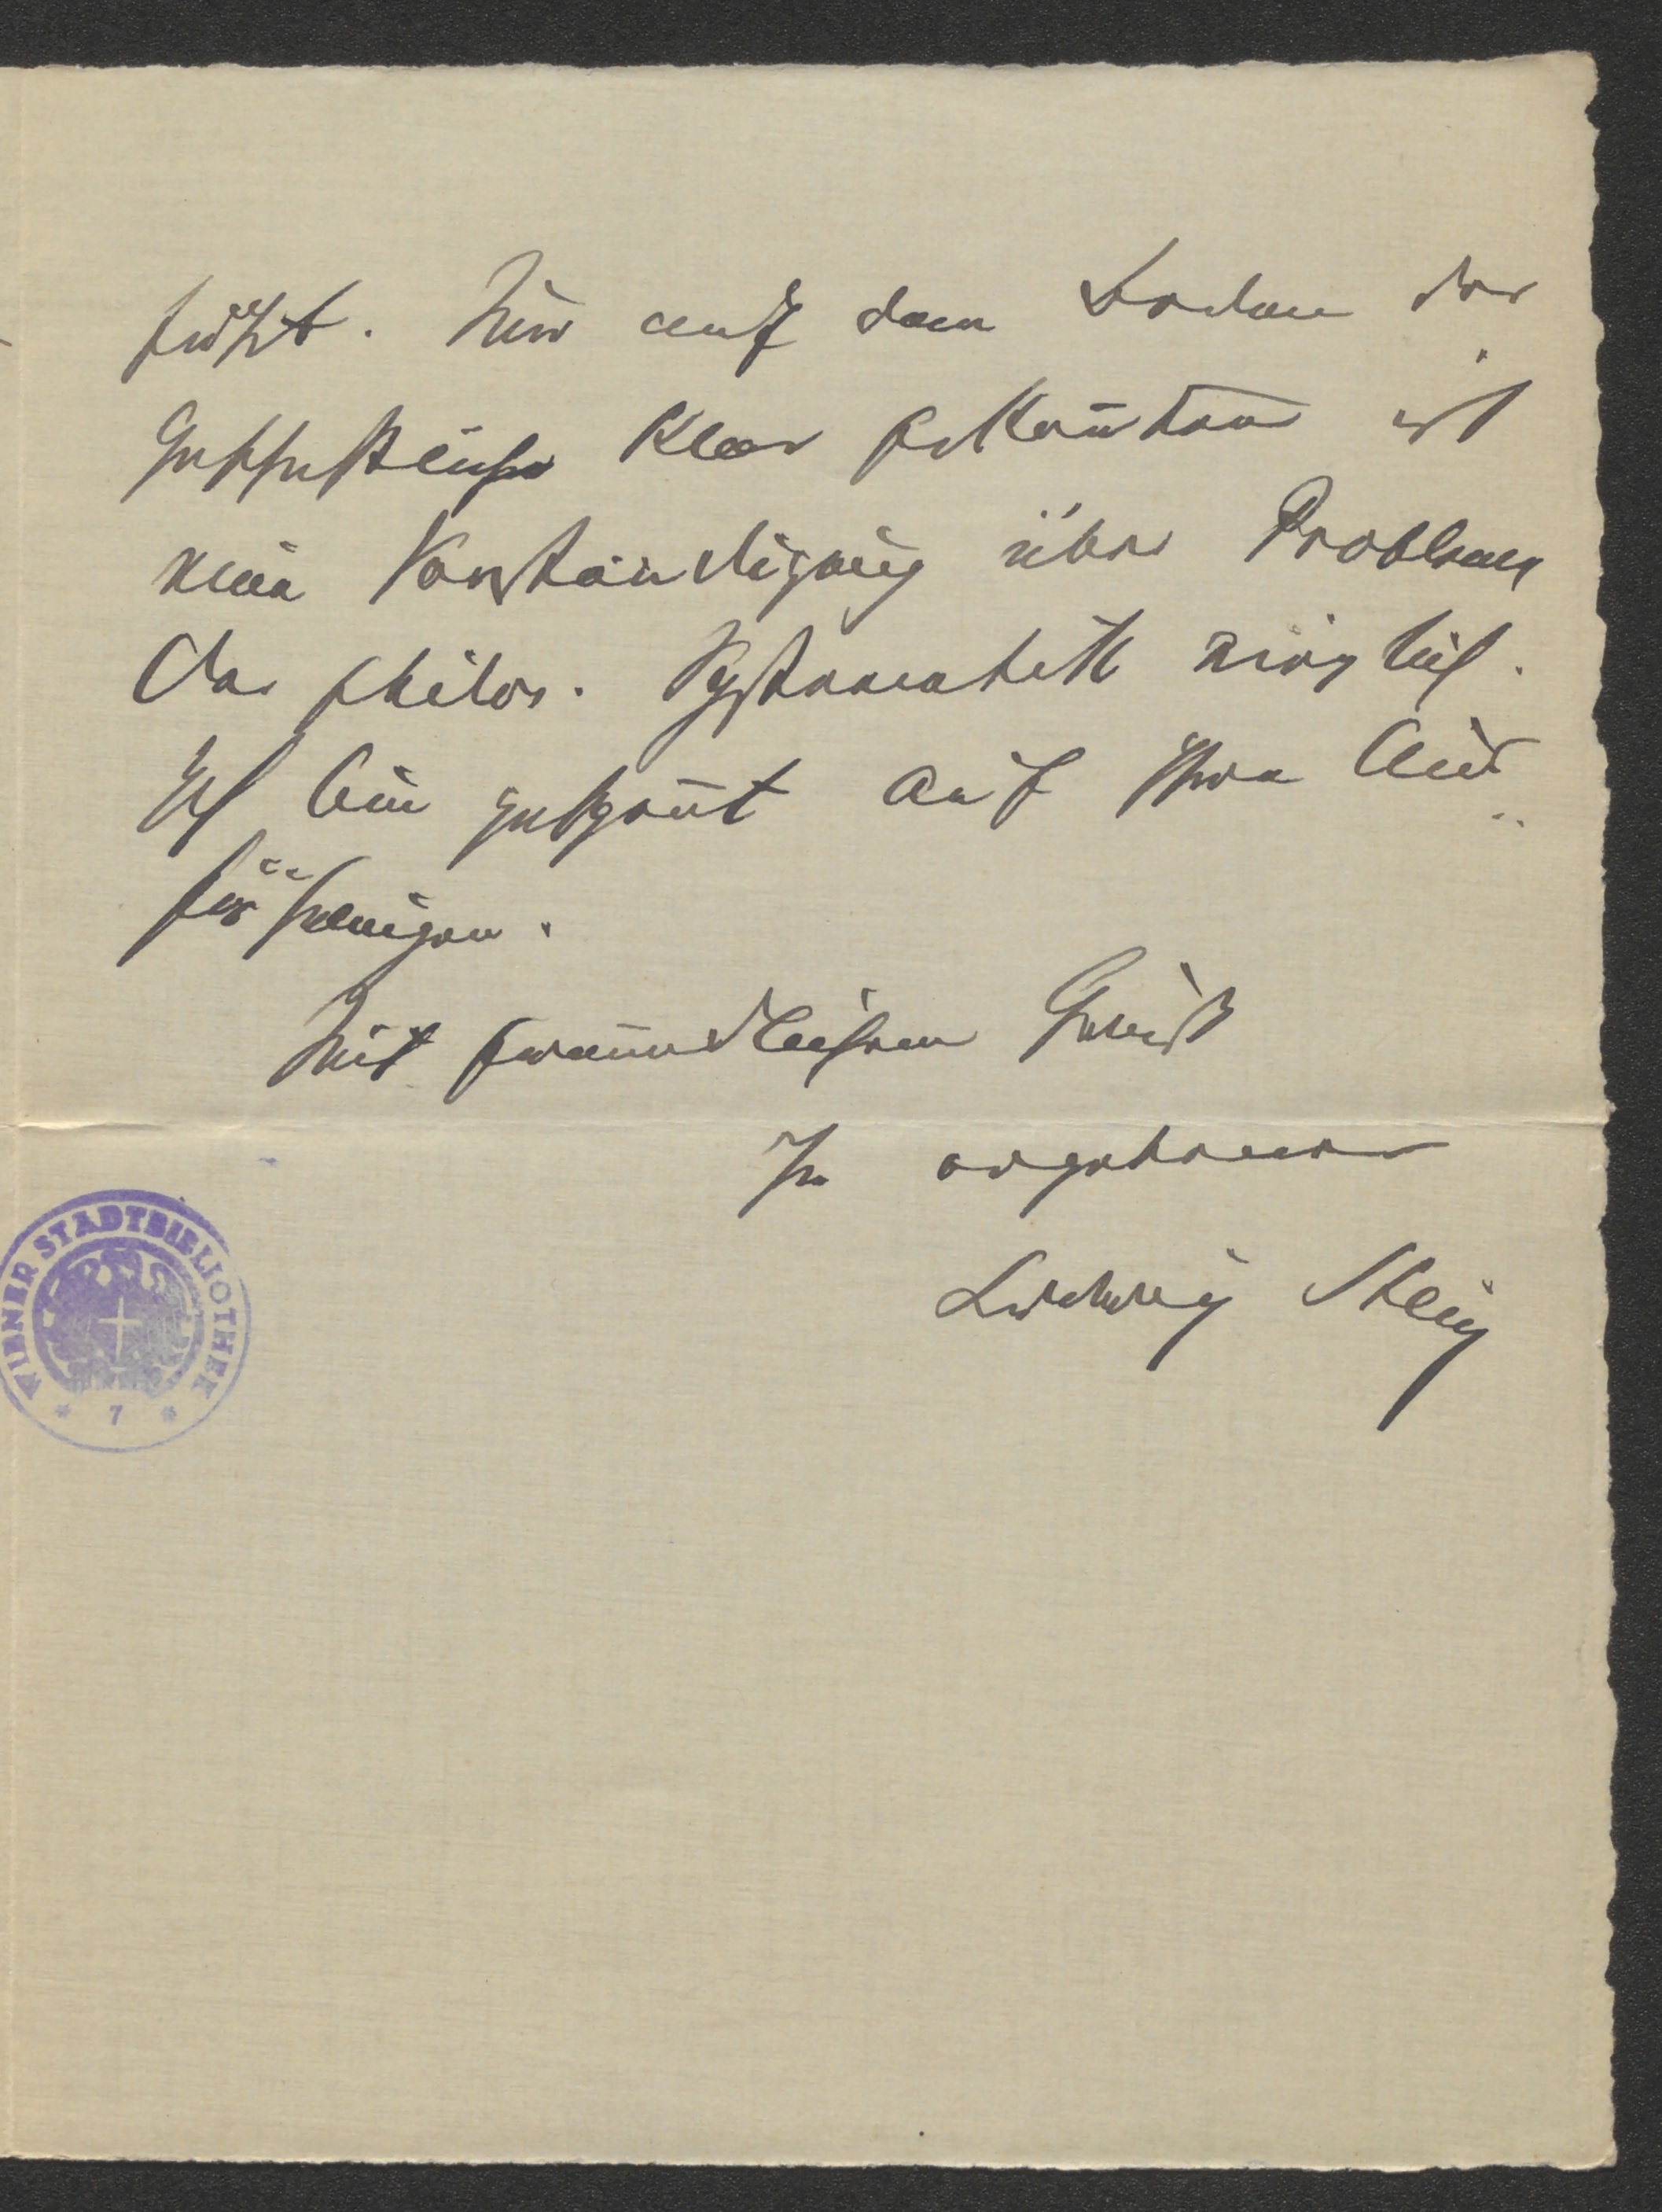 führt. Nur auf dem Boden der
Geschichte klar erkannten ist
eine Verständigung über Probleme
der philos. Systematik möglich.
Ich bin gespannt auf Ihre Aus-
führungen.
Mit freundlichem Gruß
Ihr ergebener
Ludwig Stein
WIENER STADTBIBLIOTHEK
* 7 *